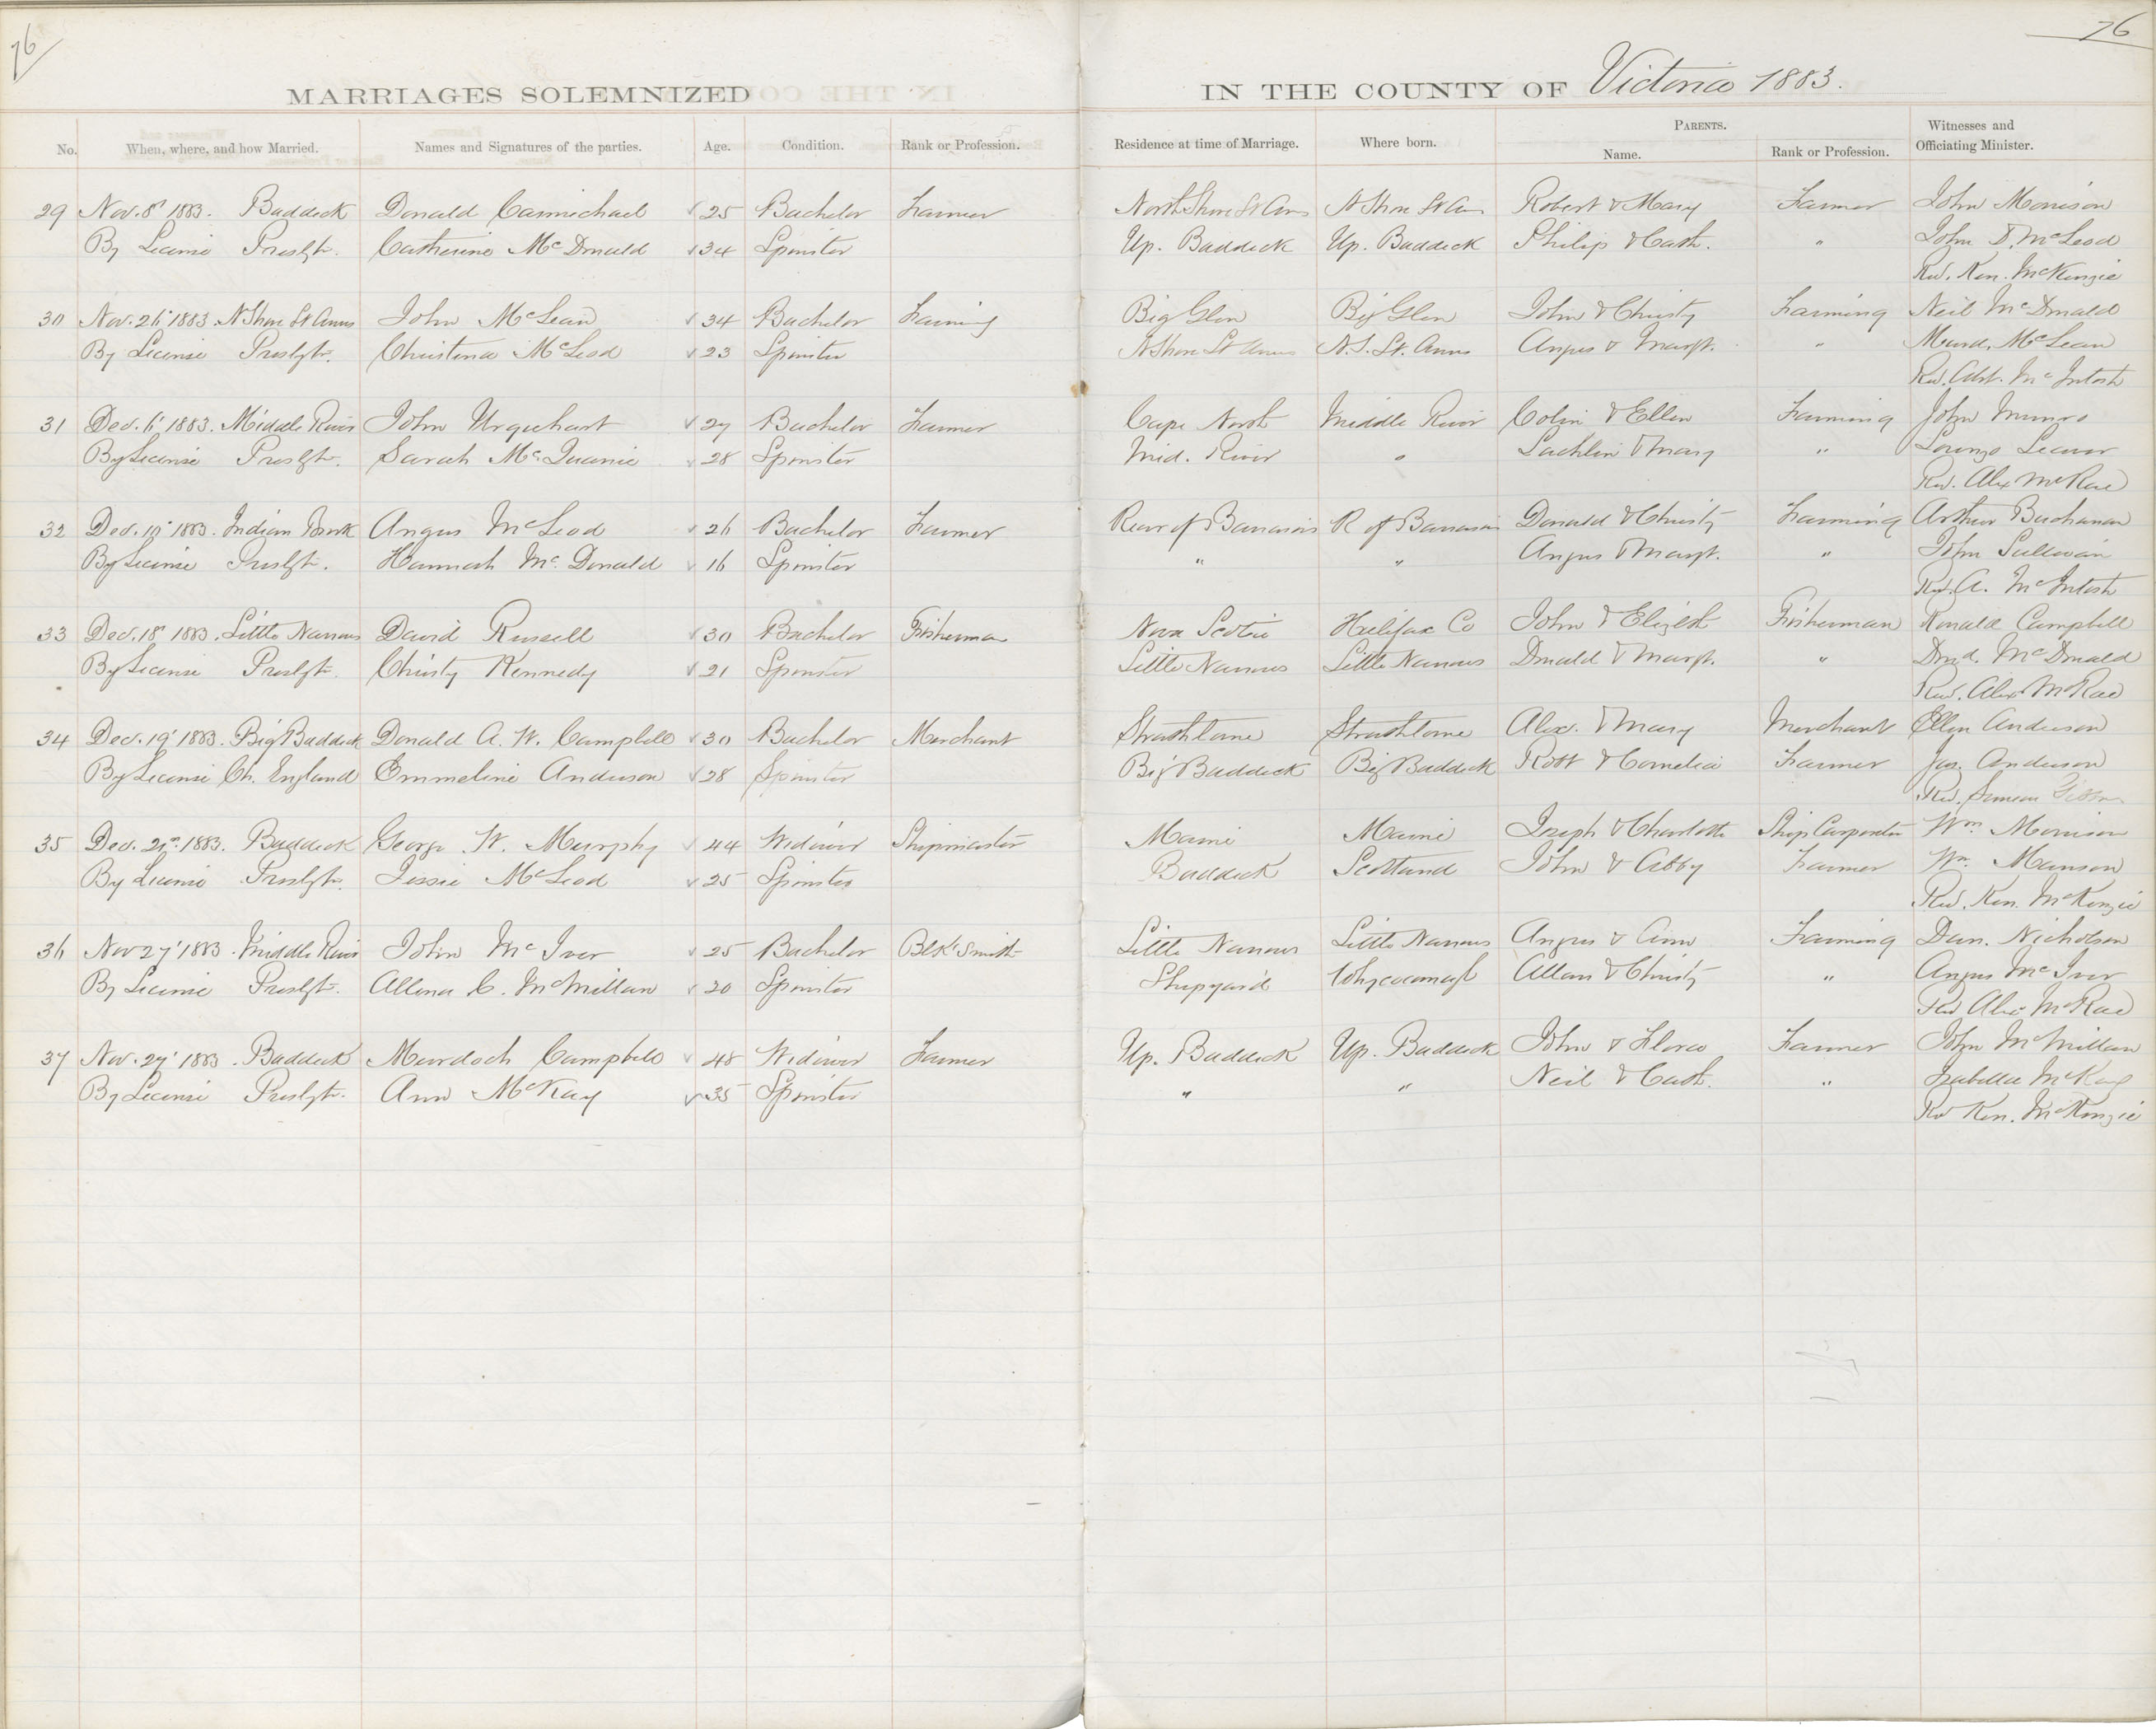 76
76
MARRIAGES SOLEMNIZED IN THE COUNTY OF Victoria 1883.
No. When, where, and how Married. Names and Signatures of the parties. Age. Condition. Rank or Profession. Residence at time of Marriage. Where born. PARENTS. Name. Rank or Profession. Witnesses and Officiating Minister.
29 Nov. 8' 1883. Baddeck Donald Carmichael 25 Bachelor Farmer North Shore St Anns N Shore St Ann Robert & Mary Farmer John Morrison
By License Presbytr. Catherine McDonald 34 Spinster Up. Baddeck Up. Baddeck Philip & Cath. " John D. McLeod
Rev. Ken. McKenzie
30 Nov. 26' 1883 N Shore St Anns John McLean 34 Bachelor Farming Big Glen Big Glen John & Christy Farming Neil McDonald
By License Presbytr. Christena McLeod 23 Spinster N Shore St Anns N.S. St. Anns Angus & Margt. " Murd. McLean
Rev. Abr. McIntosh
31 Dec. 6' 1883. Middle River John Urquhart 27 Bachelor Farmer Cape North Middle River Colin & Ellen Farming John Munro
By License Presbytr. Sarah McQuarrie 28 Spinster Mid. River " Lachlin & Mary "
Rev. Alex McRae
32 Dec. 10' 1883. Indian Brook Angus McLeod 26 Bachelor Farmer Rear of Barrasois R of Barrasois Donald & Christy Farming Arthur Buchanan
By License Presbytr. Hannah McDonald 16 Spinster " " Angus & Margt. " John Sullivan
Rev. A. McIntosh
33 Dec. 18' 1883. Little Narrows David Russell 30 Bachelor Fisherman Nova Scotia Halifax Co John & Elizbt Fisherman Ronald Campbell
By License Presbytr. Christy Kennedy 21 Spinster Little Narrows Little Narrows Donald & Margt. " Dond. McDonald
Rev. Alex McRae
34 Dec. 19' 1883. Big Baddeck Donald A. W. Campbell 30 Bachelor Merchant Strathlorne Strathlorne Alex. & Mary Merchant Ellen Anderson
By License Ch. England Emmeline Anderson 28 Spinster Big Baddeck Big Baddeck Robt & Cornelia Farmer Jas. Anderson
Rev. Simeon Gibbon
35 Dec. 1883. Baddeck George W. Murphy 44 Widower Shipmaster Maine Maine Joseph & Charlotte Ship Carpenter Wm. Morrison
By License Presbytr. Jessie McLeod 25 Spinster Baddeck Scotland John & Abby Farmer Wm. Manson
Rev. Ken. McKenzie
36 Nov 27' 1883. Middle River John McIver 25 Bachelor Blk Smith Little Narrows Little Narrows Angus & Ann Farming Dan. Nicholson
By License Presbytr. Allena C. McMillan 20 Spinster Shipyard Whycocomagh Allan & Christy " Angus McIver
Rev Alex McRae
37 Nov. 27' 1883. Baddeck Murdoch Campbell 48 Widower Farmer Up. Baddeck Up. Baddeck John & Flora Farmer John McMillan
By License Presbytr. Ann McKay 35 Spinster " " Neil & Cath. " Isabella McKay
Rev Ken. McKenzie